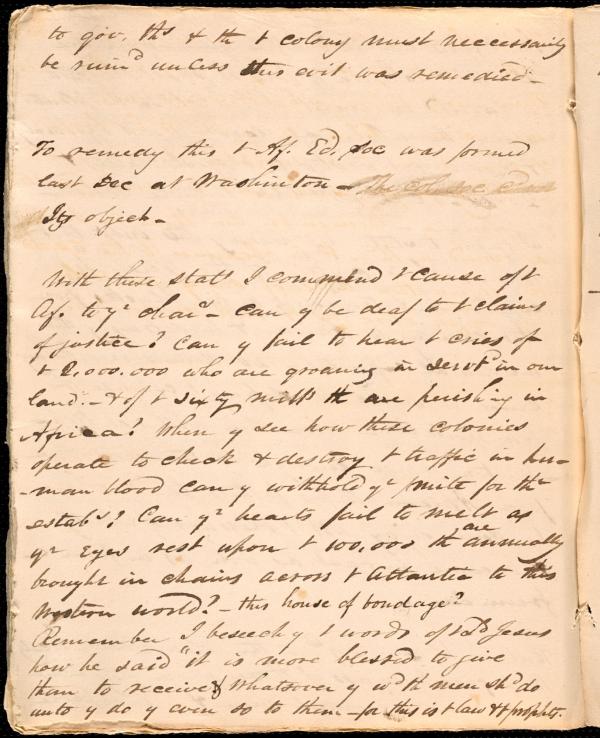 to gov. ths & th t colony must neccessarily
be ruin'd unless this evil was remedied—
To remedy this t Af. Ed. Soc was formed
last Dec at Washinton — The Col. Soc
Its object—
With these stats I commend t cause of t
Af. to yr char's — Can y be deaf to t claims
of justice? Can y fail to hear t cries of
t 2,000.000 who are groaning in servt in our
land. — & of t sixty mills th are perishing in
Africa? When y see how these colonies
operate to check & destroy t traffic in hu-
-man blood can y withhold yr mite for thr
estabs? Can yr hearts fail to melt as
yr Eyes rest upon t 100,000 th are annually
brought in chains across t Atlantic to this
Western world? — this house of bondage?
Remember I beseech y t words of t Ld Jesus
how he said "it is more blessed to give
than to receive & Whatsoever y wd th men shd do
unto y do y even so to them — for this is t law & t prophets.